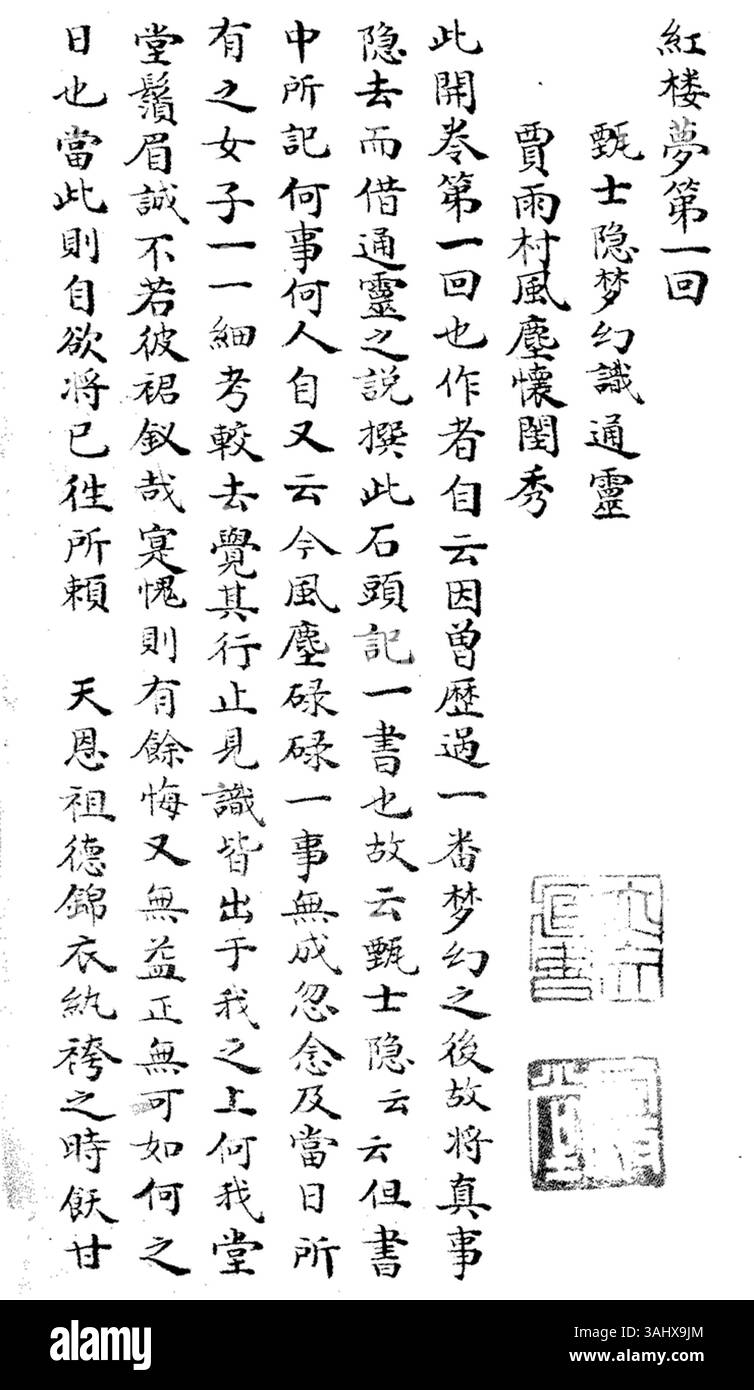 紅楼夢第一回
甄士隐梦幻識通靈
賈雨村風塵懷閨秀
此開卷第一回也作者自云因曽歷過一番梦幻之後故将真事
隐去而借通靈之説撰此石頭記一書也故云甄士隐云云但書
中所記何事何人自又云今風塵碌碌一事無成忽念及當日所
有之女子一一細考較去覺其行止見識皆出于我之上何我堂
堂鬚眉誠不若彼裙釵哉寔愧則有餘悔又無益正無可如何之
日也當此則自欲将已徃所賴 天恩祖德錦衣紈袴之時飫甘
alamy
Image ID: 3AHX9JM
www.alamy.com